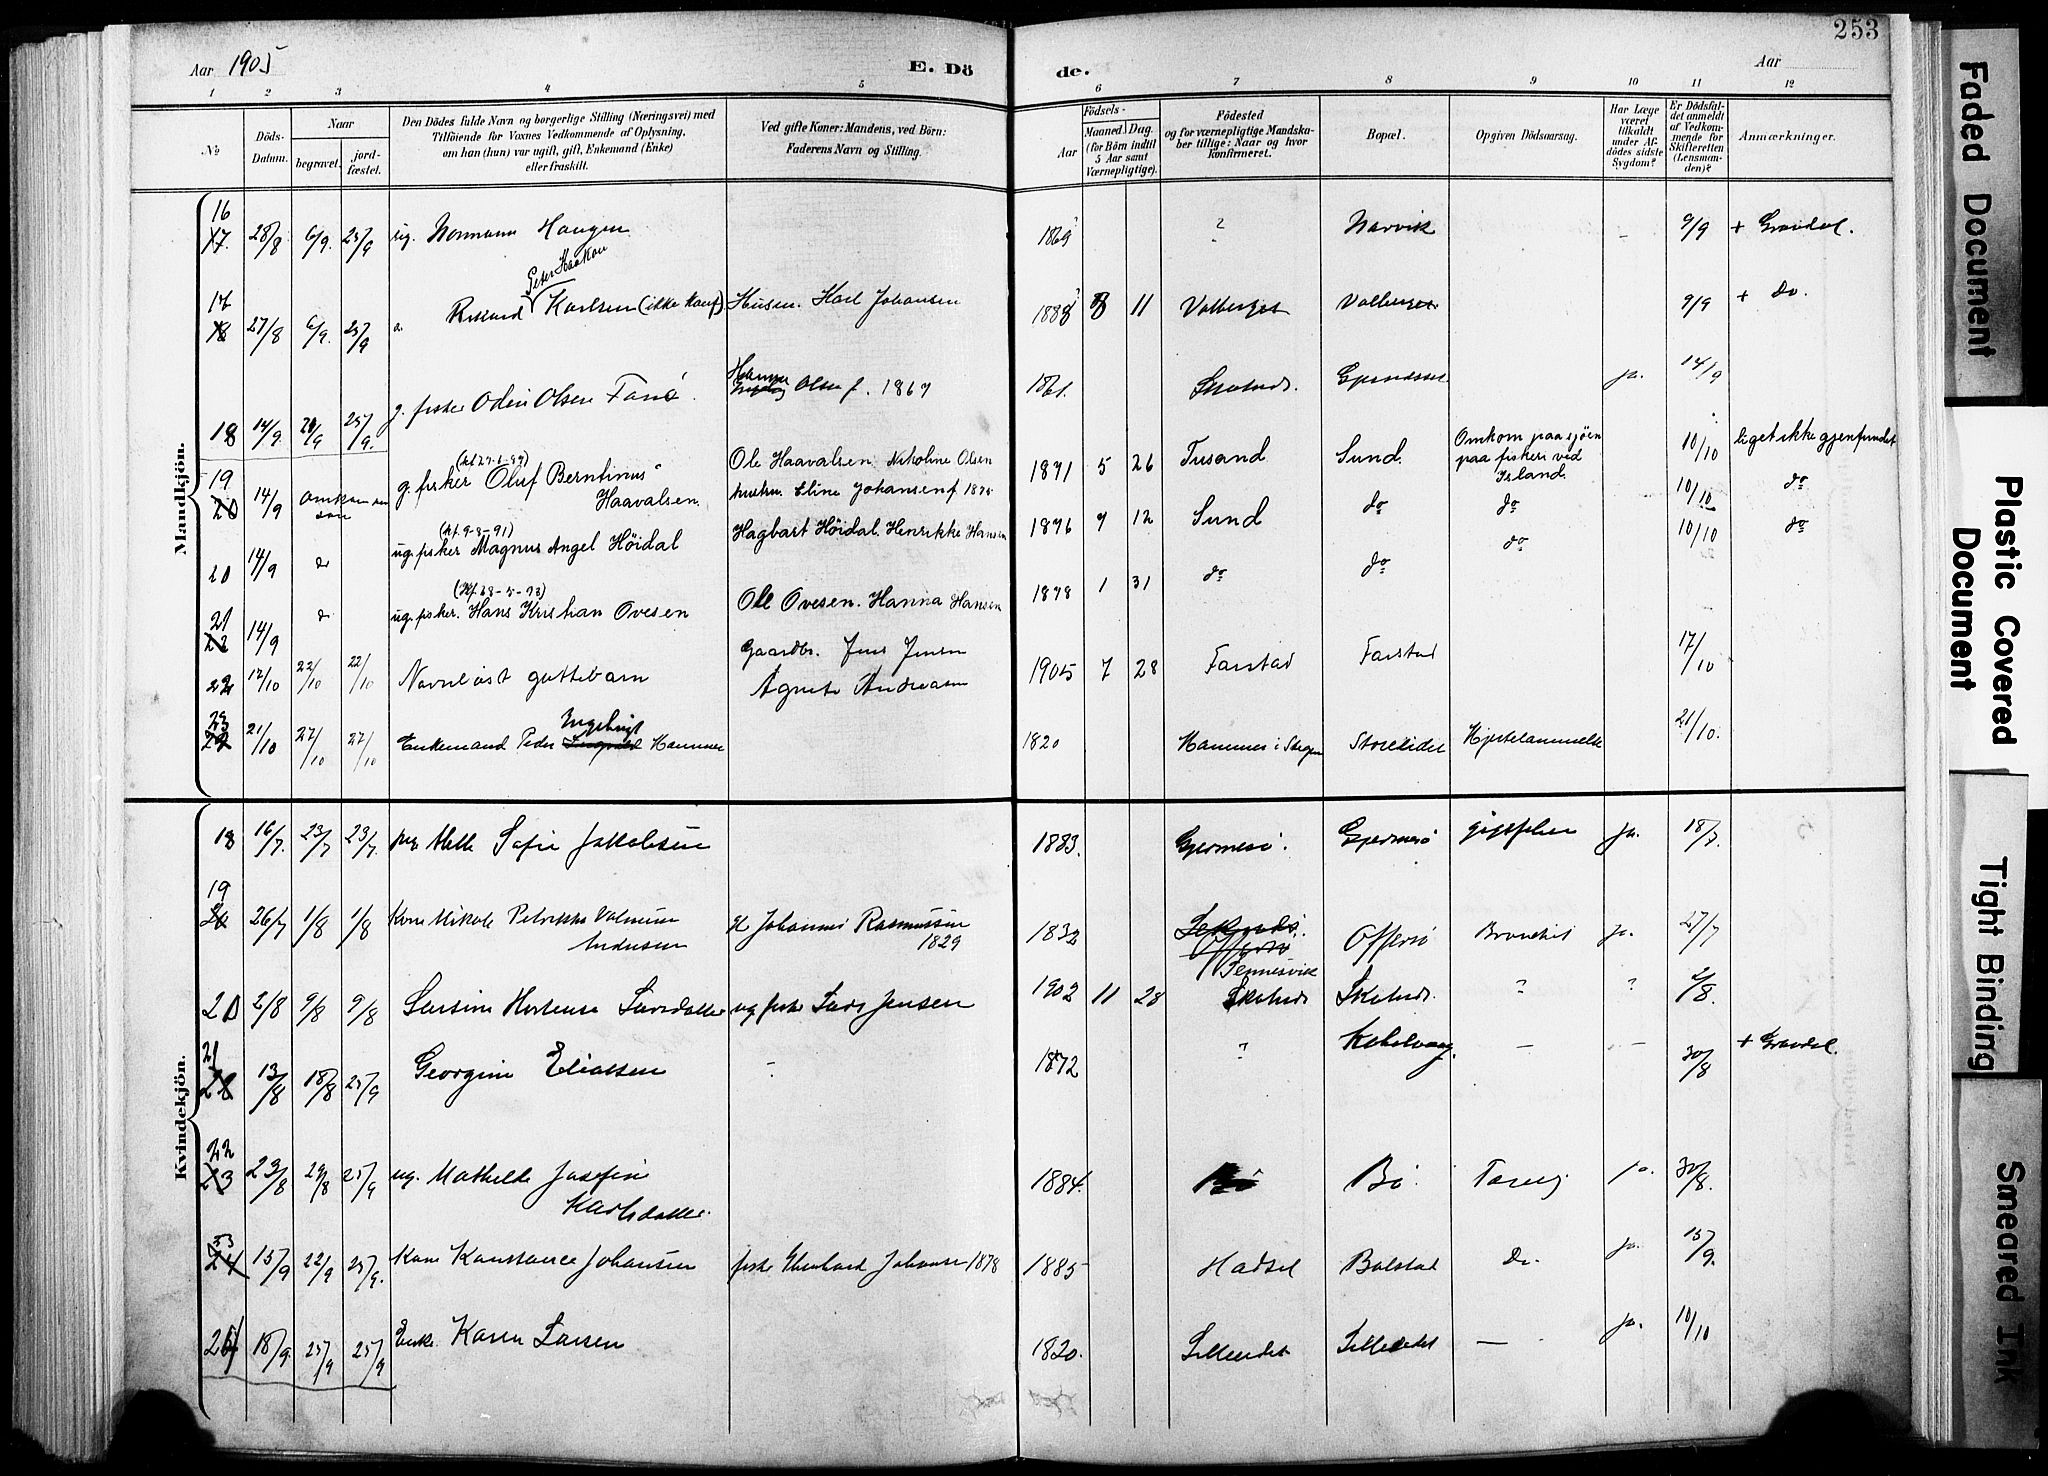 253
Aar 1905 E. Dö de. Aar
1 2 3 4 5 6 7 8 9 10 11 12
No
Döds-Datum.
Naar begravet. jord-fæstet.
Den Dödes fulde Navn og borgerlige Stilling (Næringsvei) med
Tilföiende for Voxnes Vedkommende af Oplysning,
om han (hun) var ugift, gift, Enkemand (Enke)
eller fraskilt.
Ved gifte Koner: Mandens, ved Börn:
Faderens Navn og Stilling.
Födsels-
Aar Maaned. Dag.
(for Börn indtil
5 Aar samt
Værnepligtige).
Födested
og for værnepligtige Mandska-
ber tillige: Naar og hvor
konfirmeret.
Bopæl.
Opgiven Dödsaarsag.
Har Læge
været
tilkaldt
under Af-
dödes sidste
Sygdom?
Er Dödsfal-
det anmeldt
af Vedkom-
mende for
Skifteretten
(Lensman-
den)?
Anmærkninger.
Mandkjön.
16
17. 28/8 6/9. 25/9 ug. Normann Haugen 1869 ? Narvik - 9/9 + Gravdal.
Peter Haakon
17
18 27/8 6/9. 25/9 Rikard Karlsen (ikke konf) Husm. Karl Johansen 1888 8 11 Valberget Valberget 9/9 + Do.
18 14/9. 25/9. g. fisker Odin Olsen Hansine Olsen f. 1867 1861. ja. 14/9
19
20 14/9 g. fisker Oluf Berntinus Haavalsen. Ole Haavalsen Nikoline Olsen
hustru Eline Johansen f 1875 1871 5 26 Tusand Sund. Omkom paa sjöen
paa fiskeri ved
Island. 10/10 liget ikke gjenfundet
(kf 9-8-91)
20 14/9 do ug. fisker Magnus Angel Höidal Hagbart Höidal. Henrikke Hansen 1876 7 12 Sund do do 10/10 do
21
22 14/9 do ug. fisker. Hans Kristian Ovesen Ole Ovesen. Hanna Hansen 1878 1 31 do do do 10/10 do
22 12/10 22/10 22/10 Navnlöst guttebarn Gaardbr. Jens Jensen
Agnete Andreasen 1905 7 28 Farstad Farstad 17/10
23
21/10 27/10 27/10 Enkemand Peder Ingebrigt Hammer 1820 Hammer i Stegen Storeidet Hjertelammelse 21/10.
Kvindekjön.
18 16/7. 23/7 23/7. pige Mette Sofie Jakobsen 1883. Gjermesö. Gjermesö gigtfeber ja. 18/7.
19
26/7 1/8 1/8 Kone Nikole Petrikke Andersen Johannes Rasmussen
1829 1832 Offersö
Tennesvik Offersö Bronchit ja. 27/7
20 2/8 9/8 9/8 Hortense Larsdatter ug fisker Lars Jensen 1902 11 28 ? ? 2/8.
21
13/8 18/8 25/9 Georgine Eliassen - 1872 ? Kabelvaag. - - 30/8 + Gravdal.
22
23 23/8 29/8 25/9 ug. Mathilde Josefine
Karlsdatter. 1884. Bö Bö. Tæring ja. 30/8.
23
24 15/9 22/9 25/9. Kone Konstance Johansen fisker Johansen 1878 1885 Hadsel Balstad Do. ja. 15/9.
18/9. 25/9 25/9 Enke. Karen Larsen 1820. Lilleeidet Lilleeidet - ja. 10/10
Faded Document
Plastic Covered Document
Tight Binding
Smeared Ink